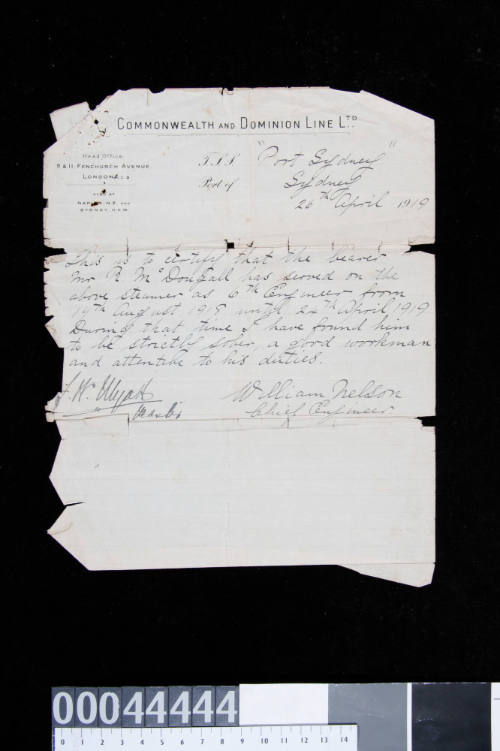 COMMONWEALTH AND DOMINION LINE LTD.
Head Office
9 & 11, FENCHURCH AVENUE,
LONDON, E.C.3
ALSO AT
NAPIER, N.Z. AND
SYDNEY, N.S.W.
T.S.S. "Port Sydney"
Port of Sydney
26th April 1919
This is to certify that the bearer
Mr R McDougall has served on the
above steamer as 6th Engineer from
19th August 1918 until 24th April 1919
During that time I have found him
to be strictly sober, a good workman
and attentive to his duties.
William Nelson
Master
Chief Engineer
00044444
0 1 2 3 4 5 6 7 8 9 10 11 12 13 14